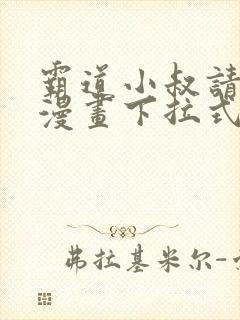 霸道小叔請
漫畫下拉式
弗拉基米尔-